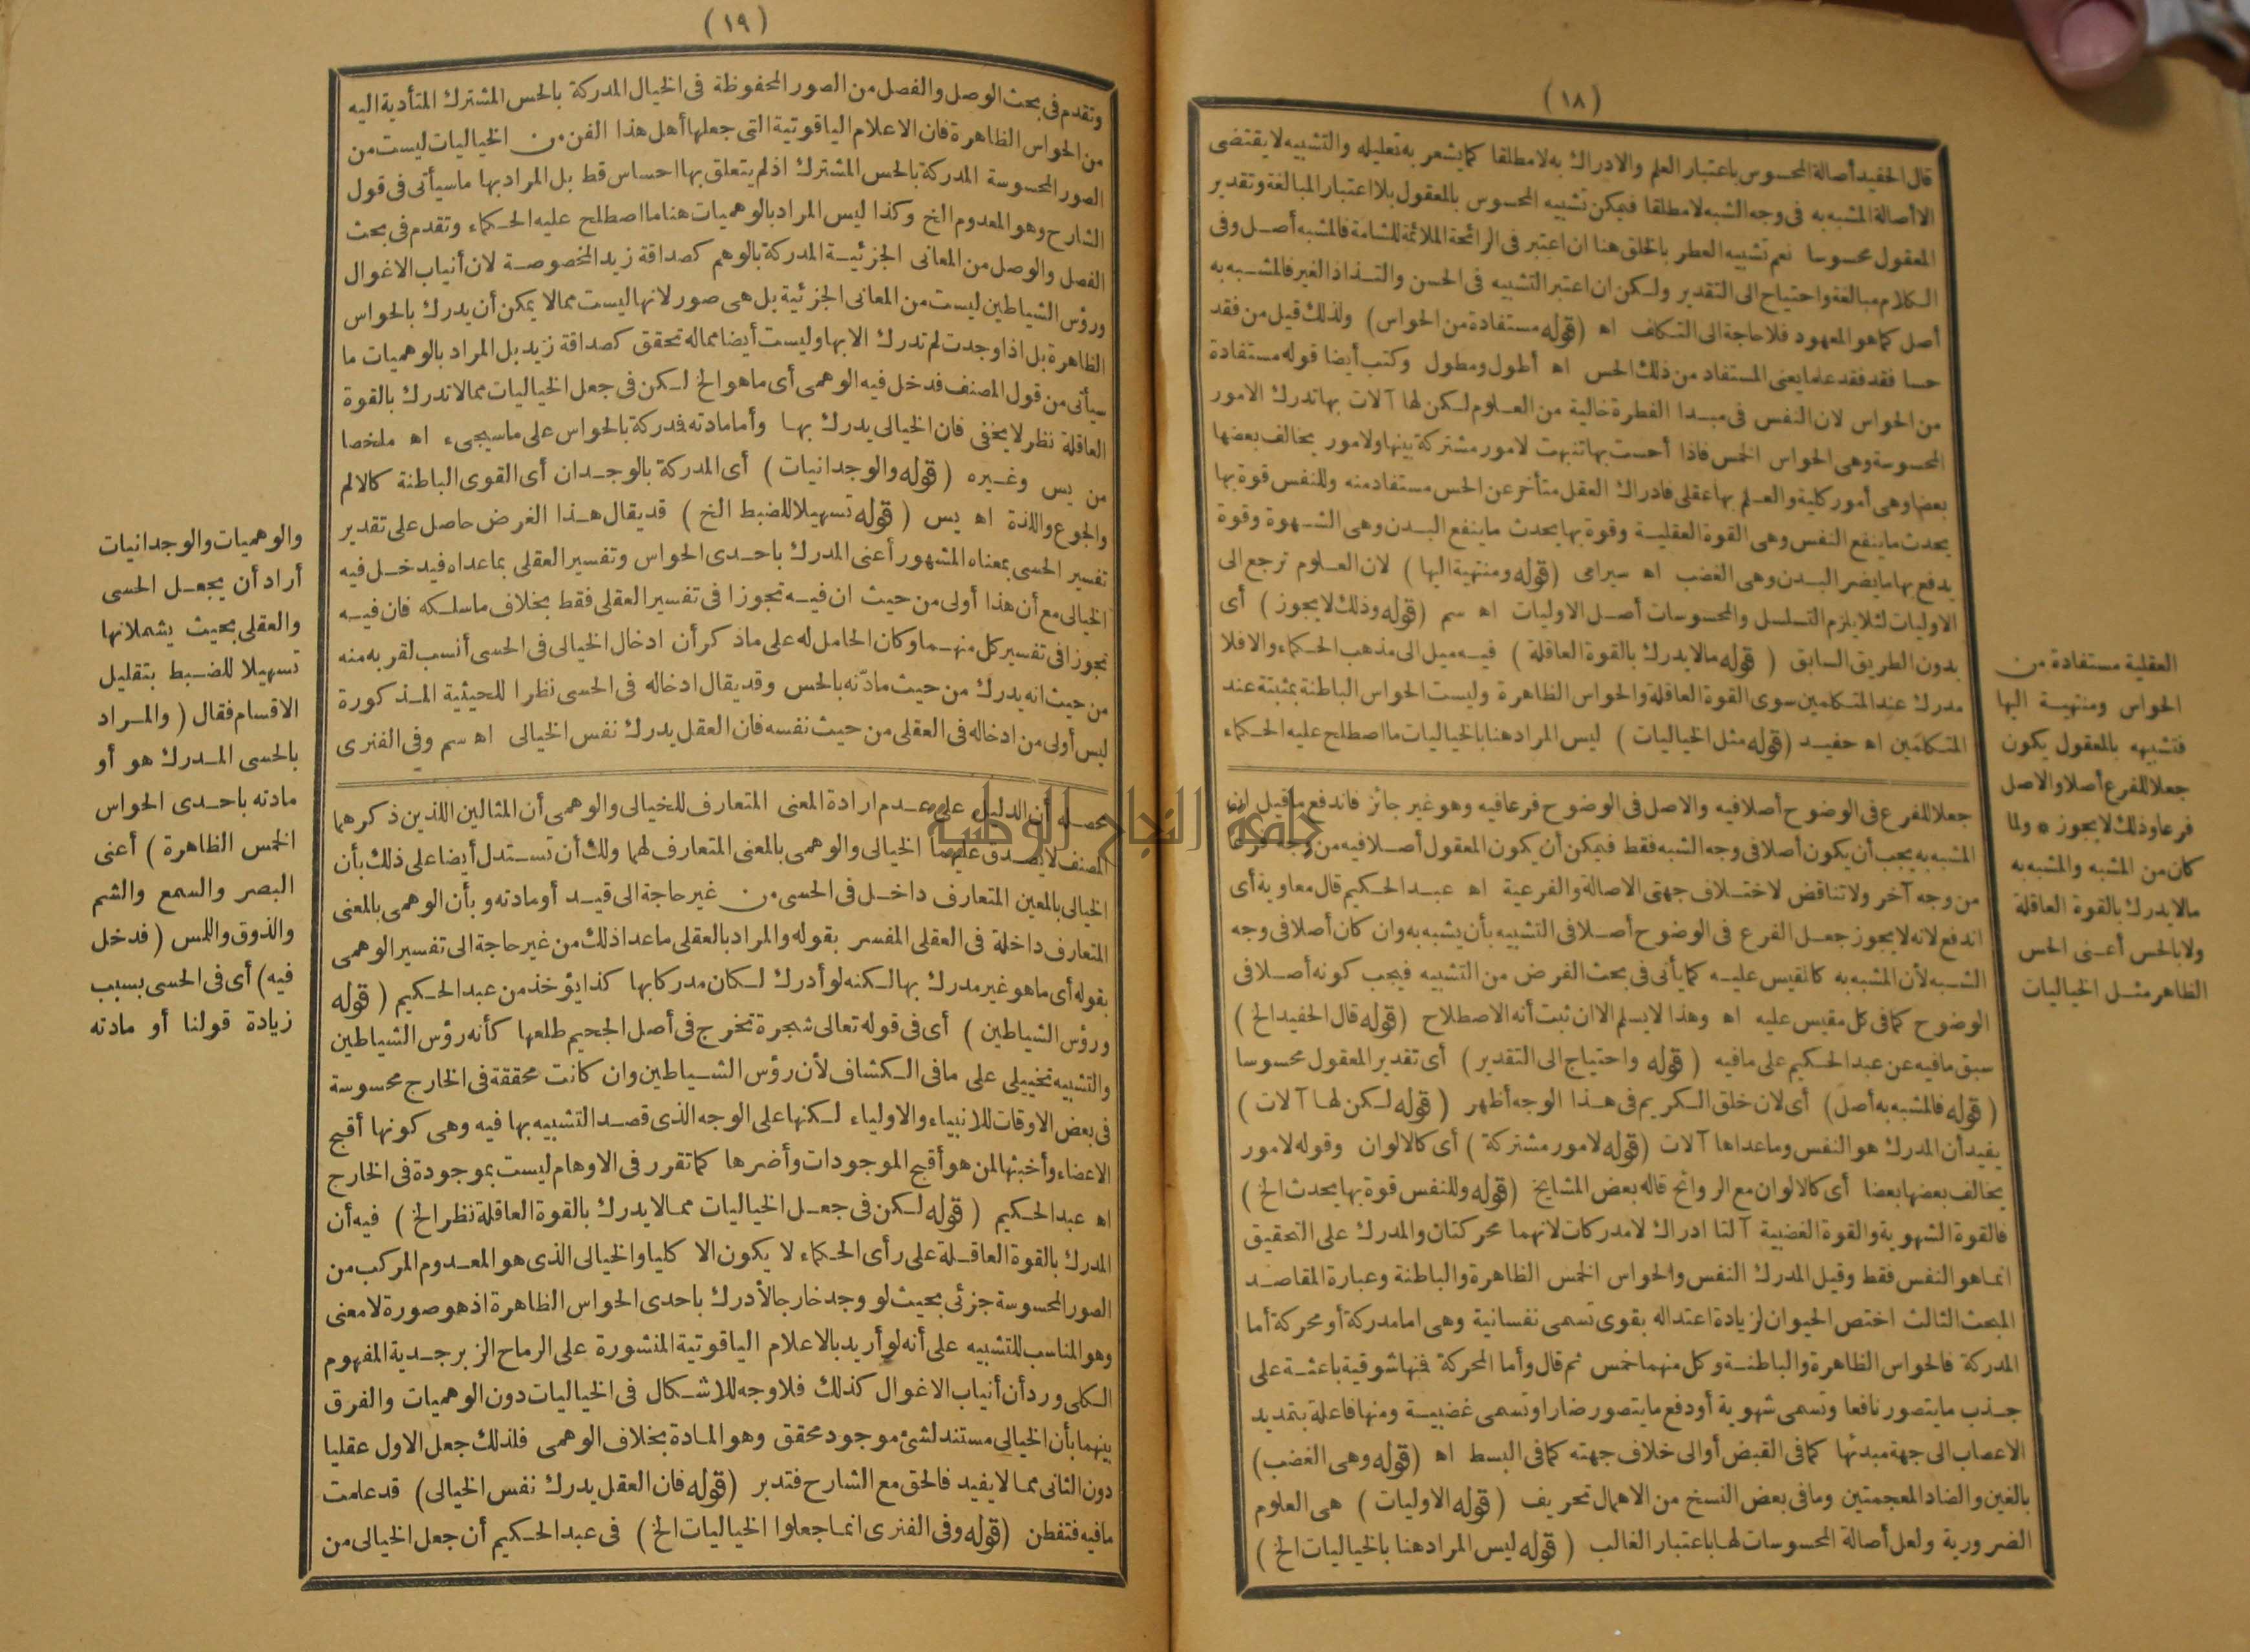 (١٨)
قال الحفيد أصالة المحسوس باعتبار العلم والادراك به لا مطلقا كما يشعر به تعليله والتشبيه لا يقتضى
الا أصالة المشبه به فى وجه الشبه لا مطلقا فيمكن تشبيه المحسوس بالمعقول بلا اعتبار المبالغة وتقدير
المعقول محسوسا نعم تشبيه العطر بالخلق هنا ان اعتبر فى الرائحة الملائمة للشامة فالمشبه أصل وفى
الكلام مبالغة واحتياج الى التقدير ولكن ان اعتبر التشبيه فى الحسن والتذاذ الغير فالمشبه به
أصل كما هو المعهود فلا حاجة الى التكلف اه (قوله مستفادة من الحواس) ولذلك قيل من فقد
حسا فقد فقد علما يعنى المستفاد من ذلك الحس اه أطول ومطول وكتب أيضا قوله مستفادة
من الحواس لان النفس فى مبدا الفطرة خالية من العلوم لكن لها آلات بها تدرك الامور
المحسوسة وهى الحواس الخمس فاذا أحست بها تنبهت لامور مشتركة بينها ولامور يخالف بعضها
بعضا وهى أمور كلية والعلم بها عقلى فادراك العقل متأخر عن الحس مستفاد منه وللنفس قوة بها
يحدث ما ينفع النفس وهى القوة العقلية وقوة بها يحدث ما ينفع البدن وهى الشهوة وقوة
يدفع بها ما يضر البدن وهى الغضب اه سيرامى (قوله ومنتهية اليها) لان العلوم ترجع الى
الاوليات لئلا يلزم التسلسل والمحسوسات أصل الاوليات اه سم (قوله وذلك لا يجوز) أى
بدون الطريق السابق (قوله ما لا يدرك بالقوة العاقلة) فيه ميل الى مذهب الحكماء والا فلا
مدرك عند المتكلمين سوى القوة العاقلة والحواس الظاهرة وليست الحواس الباطنة بمثبتة عند
المتكلمين اه حفيد (قوله مثل الخياليات) ليس المراد هنا بالخياليات ما اصطلح عليه الحكماء
جعلا للفرع فى الوضوح أصلا فيه والاصل فى الوضوح فرعا فيه وهو غير جائز فاندفع ما قيل ان
المشبه به يجب أن يكون أصلا فى وجه الشبه فقط فيمكن أن يكون المعقول أصلا فيه من وجه فرعا
من وجه آخر ولا تناقض لاختلاف جهتى الاصالة والفرعية اه عبد الحكيم قال معاوية أى
اندفع لانه لا يجوز جعل الفرع فى الوضوح أصلا فى التشبيه بأن يشبه به وان كان أصلا فى وجه
الشبه لأن المشبه به كالمقيس عليه كما يأتى فى بحث الغرض من التشبيه فيجب كونه أصلا فى
الوضوح كما فى كل مقيس عليه اه وهذا لا يسلم الا ان ثبت أنه الاصطلاح (قوله قال الحفيد الخ)
سبق ما فيه عن عبد الحكيم على ما فيه (قوله واحتياج الى التقدير) أى تقدير المعقول محسوسا
(قوله فالمشبه به أصل) أى لان خلق الكريم فى هذا الوجه أظهر (قوله لكن لها آلات)
يفيد أن المدرك هو النفس وما عداها آلات (قوله لامور مشتركة) أى كالالوان وقوله لامور
يخالف بعضها بعضا أى كالالوان مع الروائح قاله بعض المشايخ (قوله وللنفس قوة بها يحدث الخ)
فالقوة الشهوية والقوة الغضبية آلتا ادراك لا مدركات لانهما محركتان والمدرك على التحقيق
انما هو النفس فقط وقيل المدرك النفس والحواس الخمس الظاهرة والباطنة وعبارة المقاصد
المبحث الثالث اختص الحيوان لزيادة اعتداله بقوى تسمى نفسانية وهى اما مدركة أو محركة أما
المدركة فالحواس الظاهرة والباطنة وكل منهما خمس ثم قال وأما المحركة فمنها شوقية باعثة على
جذب ما يتصور نافعا وتسمى شهوية أو دفع ما يتصور ضارا وتسمى غضبية ومنها فاعلة بتمديد
الاعصاب الى جهة مبدئها كما فى القبض أو الى خلاف جهته كما فى البسط اه (قوله وهى الغضب)
بالغين والضاد المعجمتين وما فى بعض النسخ من الاهمال تحريف (قوله الاوليات) هى العلوم
الضرورية ولعل أصالة المحسوسات لها باعتبار الغالب (قوله ليس المراد هنا بالخياليات الخ)
العقلية مستفادة من
الحواس ومنتهية اليها
فتشبيهه بالمعقول يكون
جعلا للفرع أصلا والاصل
فرعا وذلك لا يجوز * ولما
كان من المشبه والمشبه به
ما لا يدرك بالقوة العاقلة
ولا بالحس أعنى الحس
الظاهر مثل الخياليات
(١٩)
وتقدم فى بحث الوصل والفصل من الصور المحفوظة فى الخيال المدركة بالحس المشترك المتأدية اليه
من الحواس الظاهرة فان الاعلام الياقوتية التى جعلها أهل هذا الفن من الخياليات ليست من
الصور المحسوسة المدركة بالحس المشترك اذ لم يتعلق بها احساس قط بل المراد بها ما سيأتى فى قول
الشارح وهو المعدوم الخ وكذا ليس المراد بالوهميات هنا ما اصطلح عليه الحكماء وتقدم فى بحث
الفصل والوصل من المعانى الجزئية المدركة بالوهم كصداقة زيد المخصوصة لان أنياب الاغوال
ورؤس الشياطين ليست من المعانى الجزئية بل هى صور لانها ليست مما لا يمكن أن يدرك بالحواس
الظاهرة بل اذا وجدت لم تدرك الا بها وليست أيضا مما له تحقق كصداقة زيد بل المراد بالوهميات ما
سيأتى من قول المصنف فدخل فيه الوهمى أى ما هو الخ لكن فى جعل الخياليات مما لا تدرك بالقوة
العاقلة نظر لا يخفى فان الخيالى يدرك بها وأما مادته فمدركة بالحواس على ما سيجىء اه ملخصا
من يس وغيره (قوله والوجدانيات) أى المدركة بالوجدان أى القوى الباطنة كالالم
والجوع واللذة اه يس (قوله تسهيلا للضبط الخ) قد يقال هذا الغرض حاصل على تقدير
تفسير الحسى بمعناه المشهور أعنى المدرك باحدى الحواس وتفسير العقلى بما عداه فيدخل فيه
الخيالى مع أن هذا أولى من حيث ان فيه تجوزا فى تفسير العقلى فقط بخلاف ما سلكه فان فيه
تجوزا فى تفسير كل منهما وكان الحامل له على ما ذكر أن ادخال الخيالى فى الحسى أنسب لقربه منه
من حيث انه يدرك من حيث مادّته بالحس وقد يقال ادخاله فى الحسى نظرا للحيثية المذكورة
ليس أولى من ادخاله فى العقلى من حيث نفسه فان العقل يدرك نفس الخيالى اه سم وفى الفنرى
محصله أن الدليل على عدم ارادة المعنى المتعارف للخيالى والوهمى أن المثالين اللذين ذكرهما
المصنف لا يصدق عليهما الخيالى والوهمى بالمعنى المتعارف لهما ولك أن تستدل أيضا على ذلك بأن
الخيالى بالمعين المتعارف داخل فى الحسى من غير حاجة الى قيد أو مادته وبأن الوهمى بالمعنى
المتعارف داخلة فى العقلى المفسر بقوله والمراد بالعقلى ما عدا ذلك من غير حاجة الى تفسير الوهمى
بقوله أى ما هو غير مدرك بها لكنه لو أدرك لكان مدركا بها كذا يؤخذ من عبد الحكيم (قوله
ورؤس الشياطين) أى فى قوله تعالى شجرة تخرج فى أصل الجحيم طلعها كأنه رؤس الشياطين
والتشبيه تخييلى على ما فى الكشاف لأن رؤس الشياطين وان كانت محققة فى الخارج محسوسة
فى بعض الاوقات للانبياء والاولياء لكنها على الوجه الذى قصد التشبيه بها فيه وهى كونها أقبح
الاعضاء وأخبثها لمن هو أقبح الموجودات وأضرها كما تقرر فى الاوهام ليست بموجودة فى الخارج
اه عبد الحكيم (قوله لكن فى جعل الخياليات مما لا يدرك بالقوة العاقلة نظر الخ) فيه أن
المدرك بالقوة العاقلة على رأى الحكماء لا يكون الا كليا والخيالى الذى هو المعدوم المركب من
الصور المحسوسة جزئى بحيث لو وجد خارجا لأدرك باحدى الحواس الظاهرة اذ هو صورة لا معنى
وهو المناسب للتشبيه على أنه لو أريد بالاعلام الياقوتية المنشورة على الرماح الزبرجدية المفهوم
الكلى ورد أن أنياب الاغوال كذلك فلا وجه للاشكال فى الخياليات دون الوهميات والفرق
بينهما بأن الخيالى مستند لشئ موجود محقق وهو المادة بخلاف الوهمى فلذلك جعل الاول عقليا
دون الثانى مما لا يفيد فالحق مع الشارح فتدبر (قوله فان العقل يدرك نفس الخيالى) قد علمت
ما فيه فتفطن (قوله وفى الفنرى انما جعلوا الخياليات الخ) فى عبد الحكيم أن جعل الخيالى من
والوهميات والوجدانيات
أراد أن يجعل الحسى
والعقلى بحيث يشملانها
تسهيلا للضبط بتقليل
الاقسام فقال (والمراد
بالحسى المدرك هو أو
مادته باحدى الحواس
الخمس الظاهرة) أعنى
البصر والسمع والشم
والذوق واللمس (فدخل
فيه) أى فى الحسى بسبب
زيادة قولنا أو مادته
جامعة النجاح الوطنية